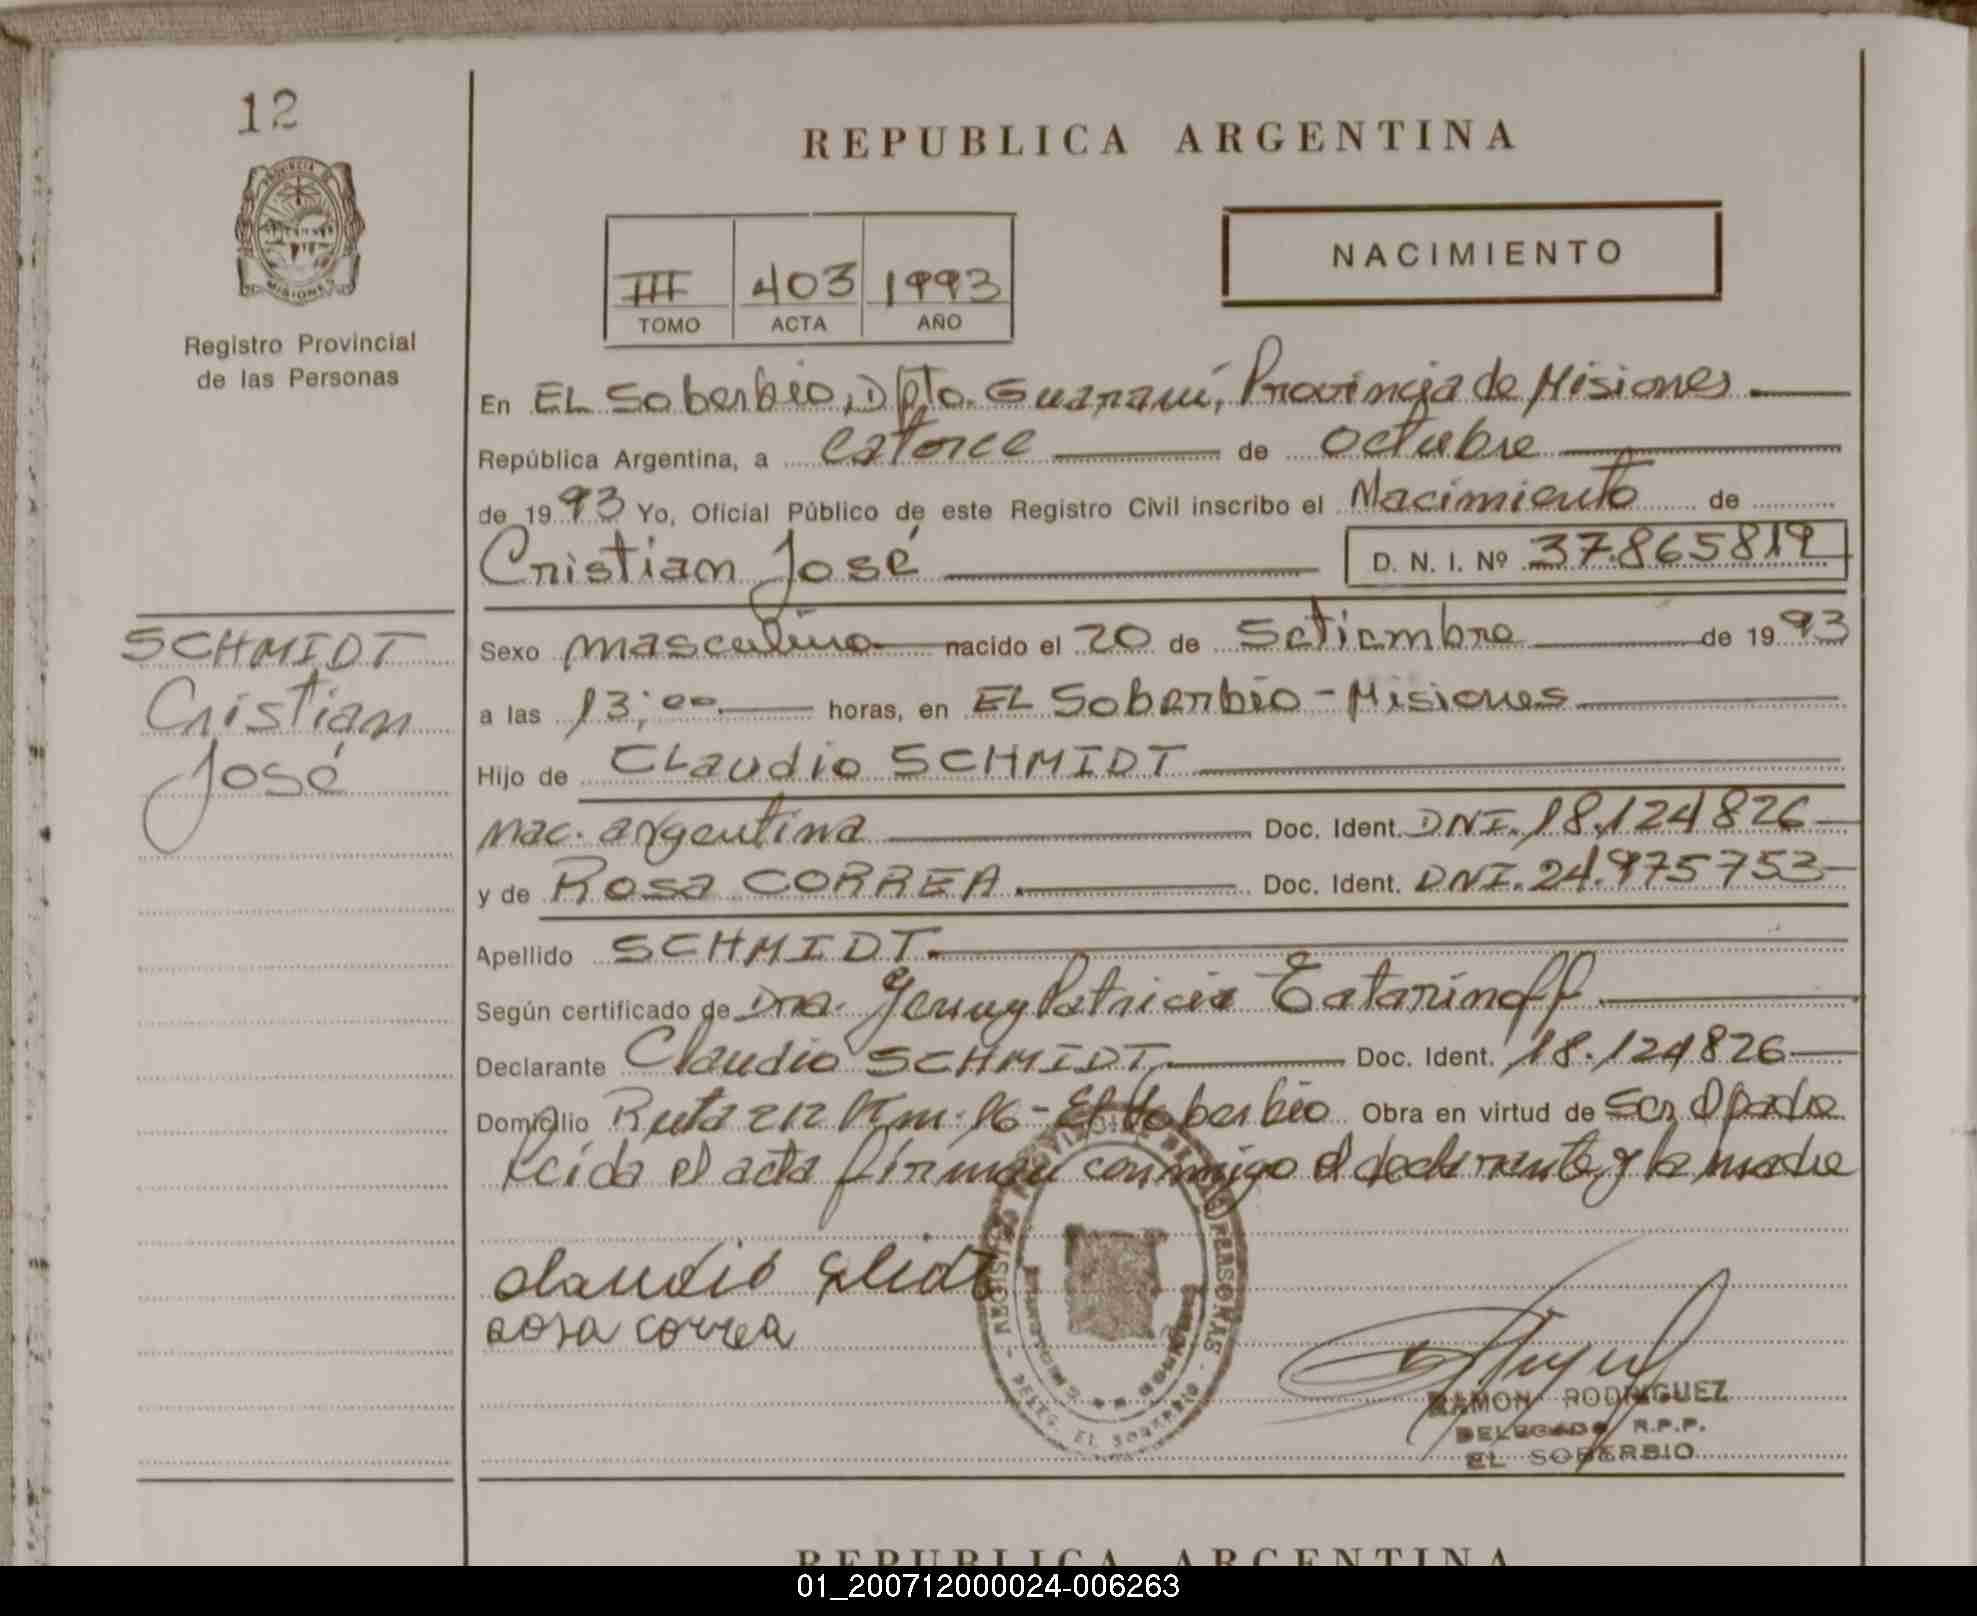 12
REPUBLICA ARGENTINA
PROVINCIA DE
MISIONES
NACIMIENTO
III 403 1993
TOMO ACTA AÑO
Registro Provincial
de las Personas
En EL Soberbio, Dpto. Guaraní, Provincia de Misiones
República Argentina, a catorce de octubre
de 1993 Yo, Oficial Público de este Registro Civil inscribo el Nacimiento de
Cristian José D. N. I. Nº 37.865819
SCHMIDT
Cristian
José
Sexo masculino nacido el 20 de Setiembre de 1993
a las 13:00 horas, en EL Soberbio - Misiones
Hijo de CLaudio SCHMIDT
nac. argentina Doc. Ident. DNI. 18.124826
y de Rosa CORREA. Doc. Ident. DNI. 24.975753
Apellido SCHMIDT.
Según certificado de Dra. Jenny Patricia Tatarinoff
Declarante Claudio SCHMIDT, Doc. Ident. 18.124826
Domicilio Ruta 212 Km. 16 - El Soberbio Obra en virtud de Ser El padre
Leída el acta firman conmigo el declarante y la madre
claudio
rosa correa
REGISTRO PROVINCIAL DE LAS PERSONAS
DELEG. EL SOBERBIO
RAMON RODRIGUEZ
DELEGADO R.P.P.
EL SOBERBIO
REPUBLICA ARGENTINA
01_200712000024-006263